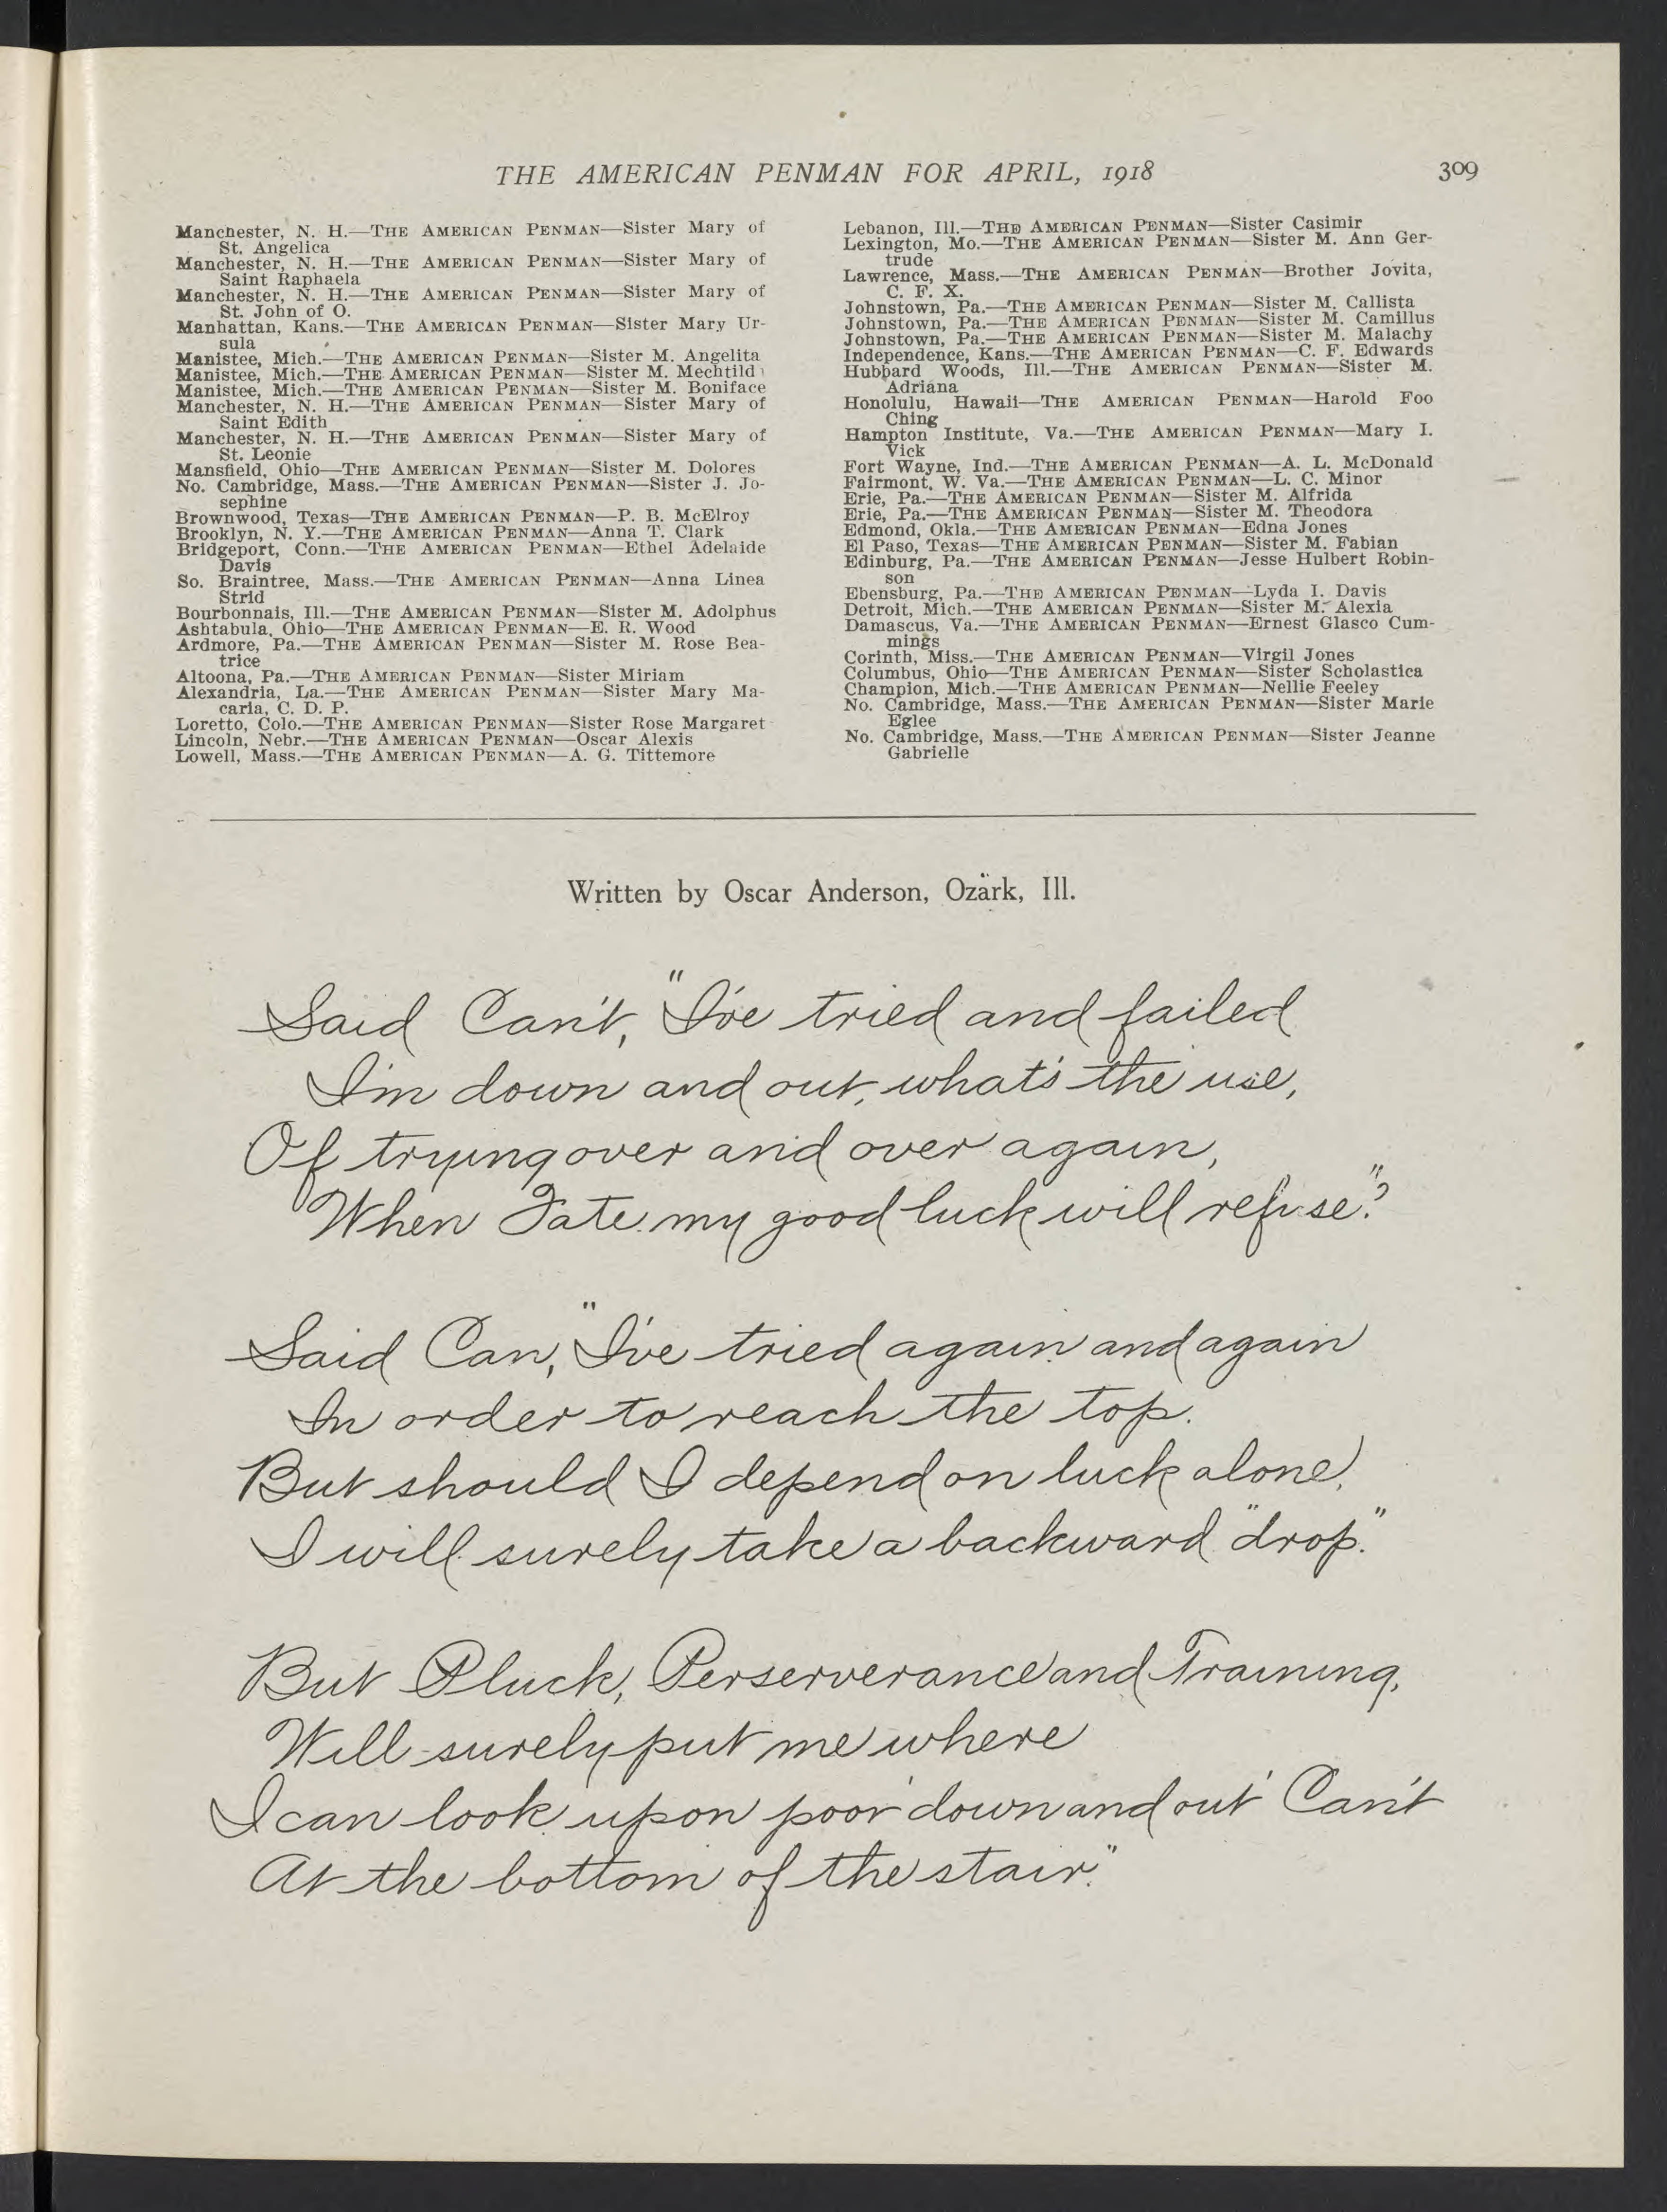 THE AMERICAN PENMAN FOR APRIL, 1918
309
Manchester, N. H.—THE AMERICAN PENMAN—Sister Mary of
St. Angelica
Manchester, N. H.—THE AMERICAN PENMAN—Sister Mary of
Saint Raphaela
Manchester, N. H.—THE AMERICAN PENMAN—Sister Mary of
St. John of O.
Manhattan, Kans.—THE AMERICAN PENMAN—Sister Mary Ur-
sula
Manistee, Mich.—THE AMERICAN PENMAN—Sister M. Angelita
Manistee, Mich.—THE AMERICAN PENMAN—Sister M. Mechtild
Manistee, Mich.—THE AMERICAN PENMAN—Sister M. Boniface
Manchester, N. H.—THE AMERICAN PENMAN—Sister Mary of
Saint Edith
Manchester, N. H.—THE AMERICAN PENMAN—Sister Mary of
St. Leonie
Mansfield, Ohio—THE AMERICAN PENMAN—Sister M. Dolores
No. Cambridge, Mass.—THE AMERICAN PENMAN—Sister J. Jo-
sephine
Brownwood, Texas—THE AMERICAN PENMAN—P. B. McElroy
Brooklyn, N. Y.—THE AMERICAN PENMAN—Anna T. Clark
Bridgeport, Conn.—THE AMERICAN PENMAN—Ethel Adelaide
Davis
So. Braintree, Mass.—THE AMERICAN PENMAN—Anna Linea
Strid
Bourbonnais, Ill.—THE AMERICAN PENMAN—Sister M. Adolphus
Ashtabula, Ohio—THE AMERICAN PENMAN—E. R. Wood
Ardmore, Pa.—THE AMERICAN PENMAN—Sister M. Rose Bea-
trice
Altoona, Pa.—THE AMERICAN PENMAN—Sister Miriam
Alexandria, La.—THE AMERICAN PENMAN—Sister Mary Ma-
caria, C. D. P.
Loretto, Colo.—THE AMERICAN PENMAN—Sister Rose Margaret
Lincoln, Nebr.—THE AMERICAN PENMAN—Oscar Alexis
Lowell, Mass.—THE AMERICAN PENMAN—A. G. Tittemore
Lebanon, Ill.—THE AMERICAN PENMAN—Sister Casimir
Lexington, Mo.—THE AMERICAN PENMAN—Sister M. Ann Ger-
trude
Lawrence, Mass.—THE AMERICAN PENMAN—Brother Jovita,
C. F. X.
Johnstown, Pa.—THE AMERICAN PENMAN—Sister M. Callista
Johnstown, Pa.—THE AMERICAN PENMAN—Sister M. Camillus
Johnstown, Pa.—THE AMERICAN PENMAN—Sister M. Malachy
Independence, Kans.—THE AMERICAN PENMAN—C. F. Edwards
Hubbard Woods, Ill.—THE AMERICAN PENMAN—Sister M.
Adriana
Honolulu, Hawaii—THE AMERICAN PENMAN—Harold Foo
Ching
Hampton Institute, Va.—THE AMERICAN PENMAN—Mary I.
Vick
Fort Wayne, Ind.—THE AMERICAN PENMAN—A. L. McDonald
Fairmont, W. Va.—THE AMERICAN PENMAN—L. C. Minor
Erie, Pa.—THE AMERICAN PENMAN—Sister M. Alfrida
Erie, Pa.—THE AMERICAN PENMAN—Sister M. Theodora
Edmond, Okla.—THE AMERICAN PENMAN—Edna Jones
El Paso, Texas—THE AMERICAN PENMAN—Sister M. Fabian
Edinburg, Pa.—THE AMERICAN PENMAN—Jesse Hulbert Robin-
son
Ebensburg, Pa.—THE AMERICAN PENMAN—Lyda I. Davis
Detroit, Mich.—THE AMERICAN PENMAN—Sister M. Alexia
Damascus, Va.—THE AMERICAN PENMAN—Ernest Glasco Cum-
mings
Corinth, Miss.—THE AMERICAN PENMAN—Virgil Jones
Columbus, Ohio—THE AMERICAN PENMAN—Sister Scholastica
Champion, Mich.—THE AMERICAN PENMAN—Nellie Feeley
No. Cambridge, Mass.—THE AMERICAN PENMAN—Sister Marie
Eglee
No. Cambridge, Mass.—THE AMERICAN PENMAN—Sister Jeanne
Gabrielle
Written by Oscar Anderson, Ozark, Ill.
Said Can't, "I've tried and failed
I'm down and out, what's the use,
Of trying over and over again,
When Fate my good luck will refuse"?
Said Can, "I've tried again and again
In order to reach the top.
But should I depend on luck alone,
I will surely take a backward "drop."
But Pluck, Perserverance and Training,
Will surely put me where
I can look upon poor 'down and out' Can't
At the bottom of the stair."